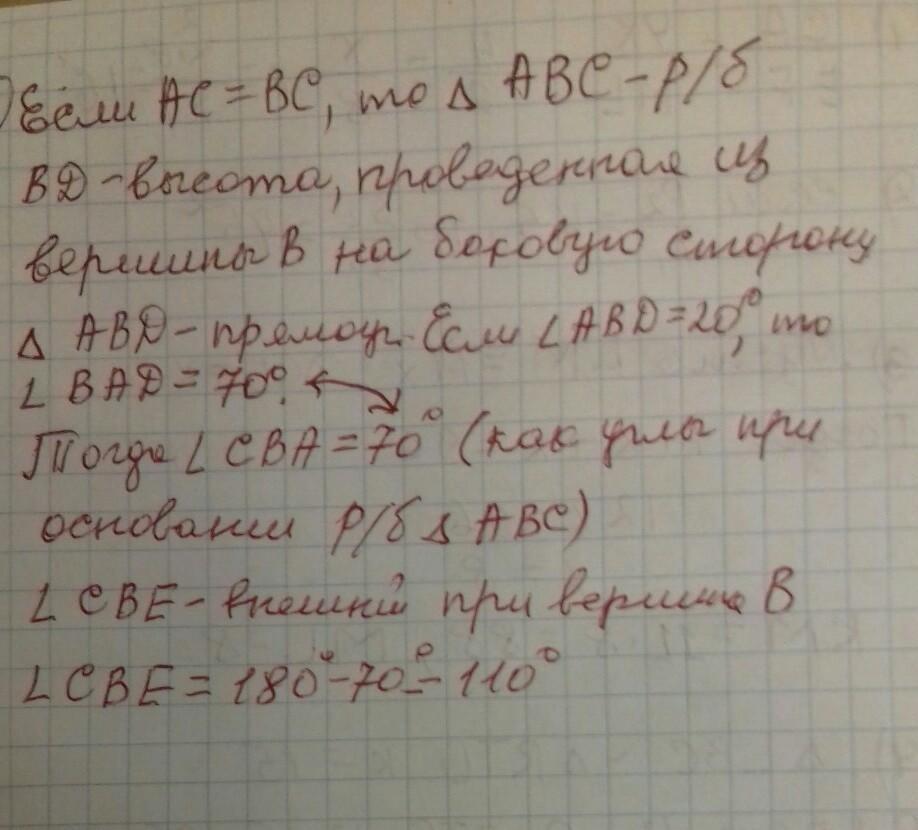 ) Если AC = BC, то Δ ABC - р/б
BD - высота, проведенная из
вершины B на боковую сторону
Δ ABD - прямоуг. Если ∠ABD = 20°, то
∠ BAD = 70°. ↔
Тогда ∠ CBA = 70° (как углы при
основании р/б Δ ABC)
∠ CBE - внешний при вершине B
∠ CBE = 180° - 70° = 110°